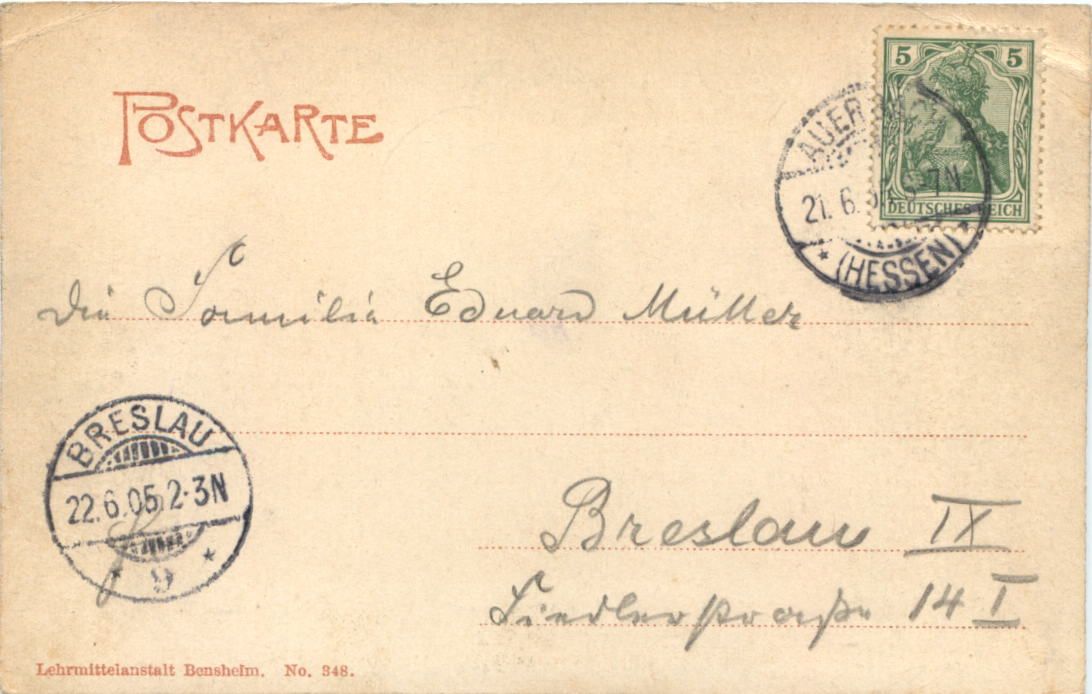 POSTKARTE
5 5
DEUTSCHES REICH
21. 6. 6-7N
* (HESSEN) *
Die Familie Eduard Müller
BRESLAU
22.6.05.2-3N
* 9 *
Breslau IX
straße 14 I
Lehrmittelanstalt Bensheim. No. 348.